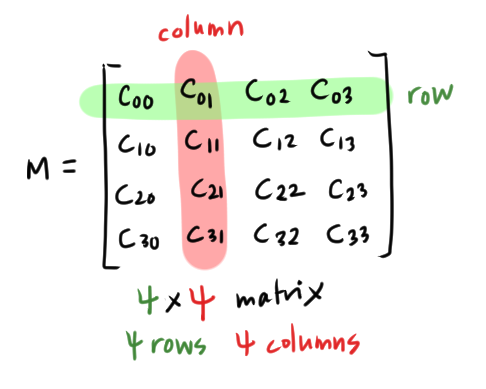 column
C00 C01 C02 C03 row
C10 C11 C12 C13
M =
C20 C21 C22 C23
C30 C31 C32 C33
4 x 4 matrix
4 rows 4 columns